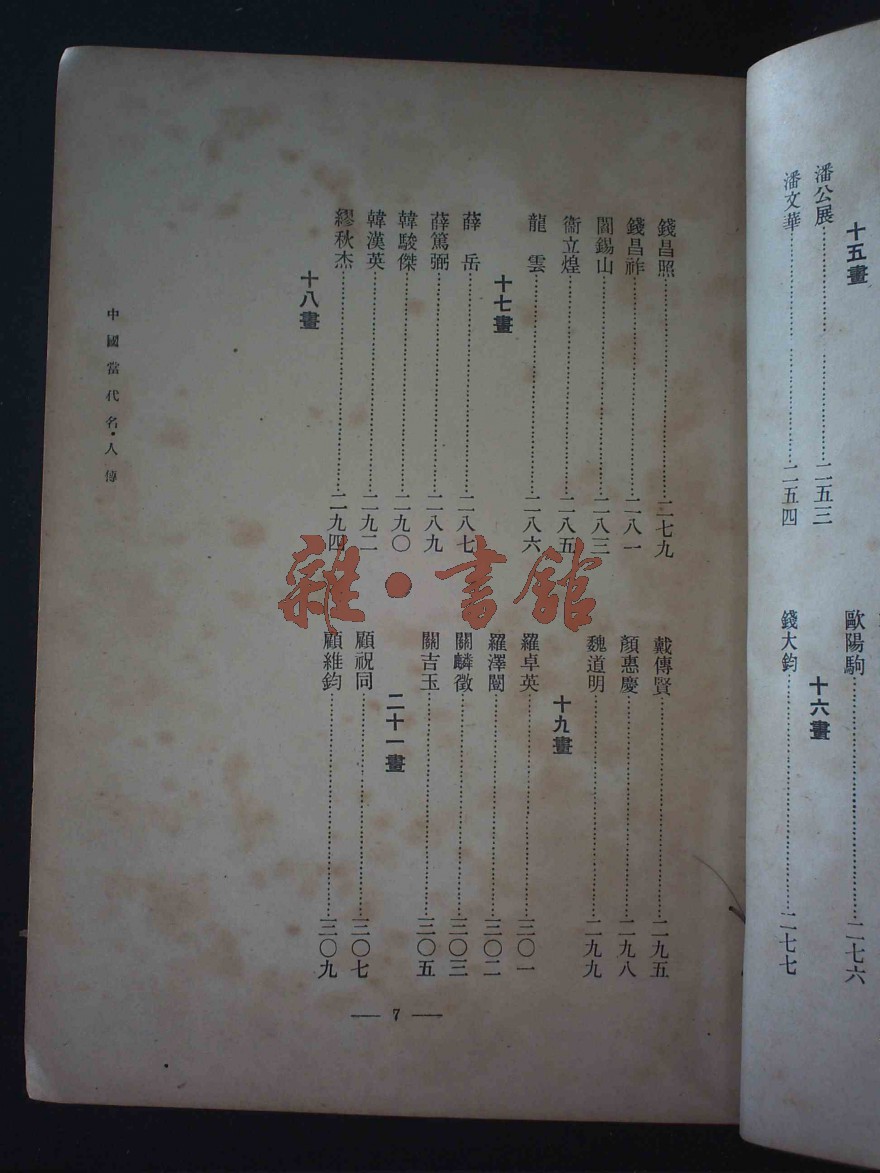 十五畫
潘公展……二五三
潘文華……二五四
歐陽駒……二七六
十六畫
錢大鈞……二七七
錢昌照……二七九
錢昌祚……二八一
閻錫山……二八三
衞立煌……二八五
龍　雲……二八六
十七畫
薛　岳……二八七
薛篤弼……二八九
韓駿傑……二九〇
韓漢英……二九二
繆秋杰……二九四
十八畫
戴傳賢……二九五
顏惠慶……二九八
魏道明……二九九
十九畫
羅卓英……三〇一
羅澤闓……三〇二
關麟徵……三〇三
關吉玉……三〇五
二十一畫
顧祝同……三〇七
顧維鈞……三〇九
中國當代名・人傳
— 7 —
雜・書館